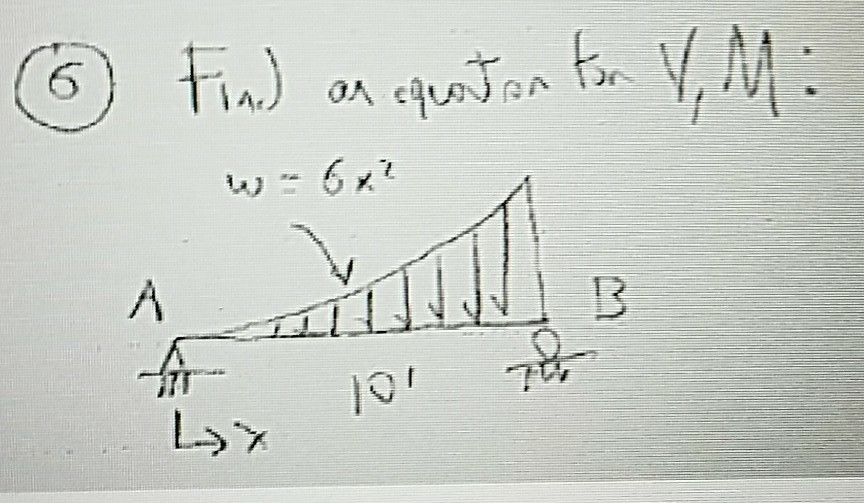 6 Find an equation for V, M:
w = 6x²
A
B
10'
x